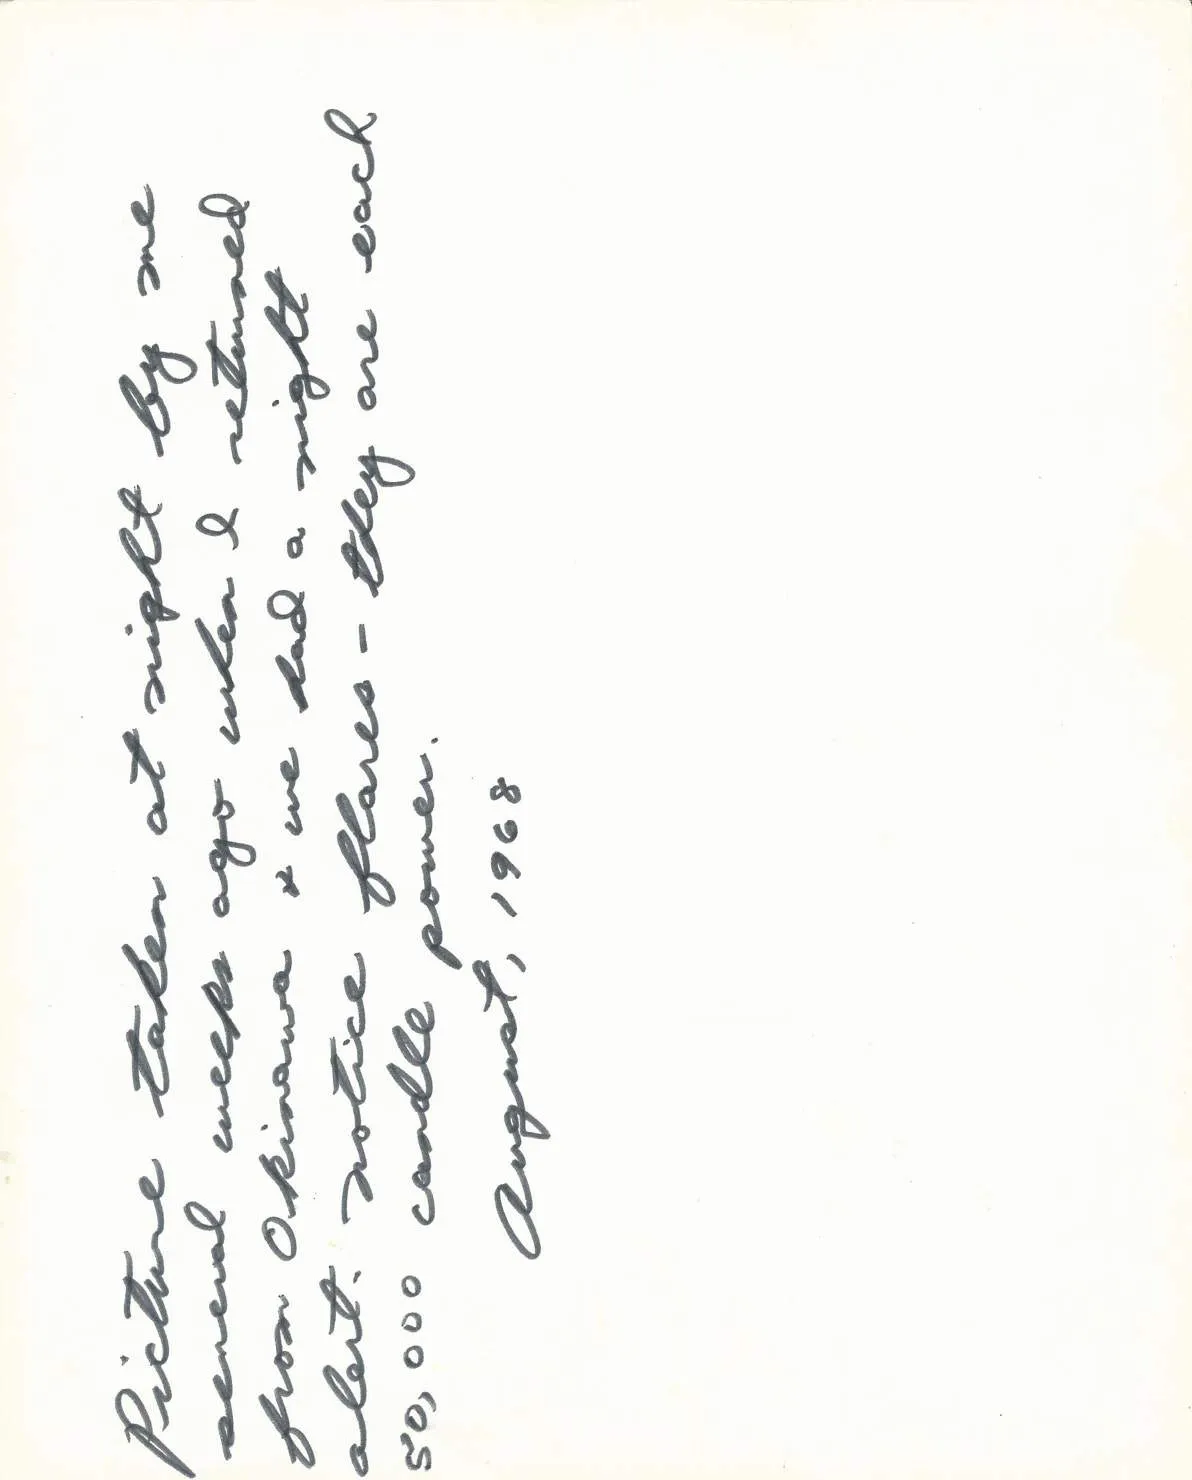 Picture taken at night by me
several weeks ago when I returned
from Okinawa & we had a night
alert. Notice flares - they are each
50,000 candle power.
August, 1968